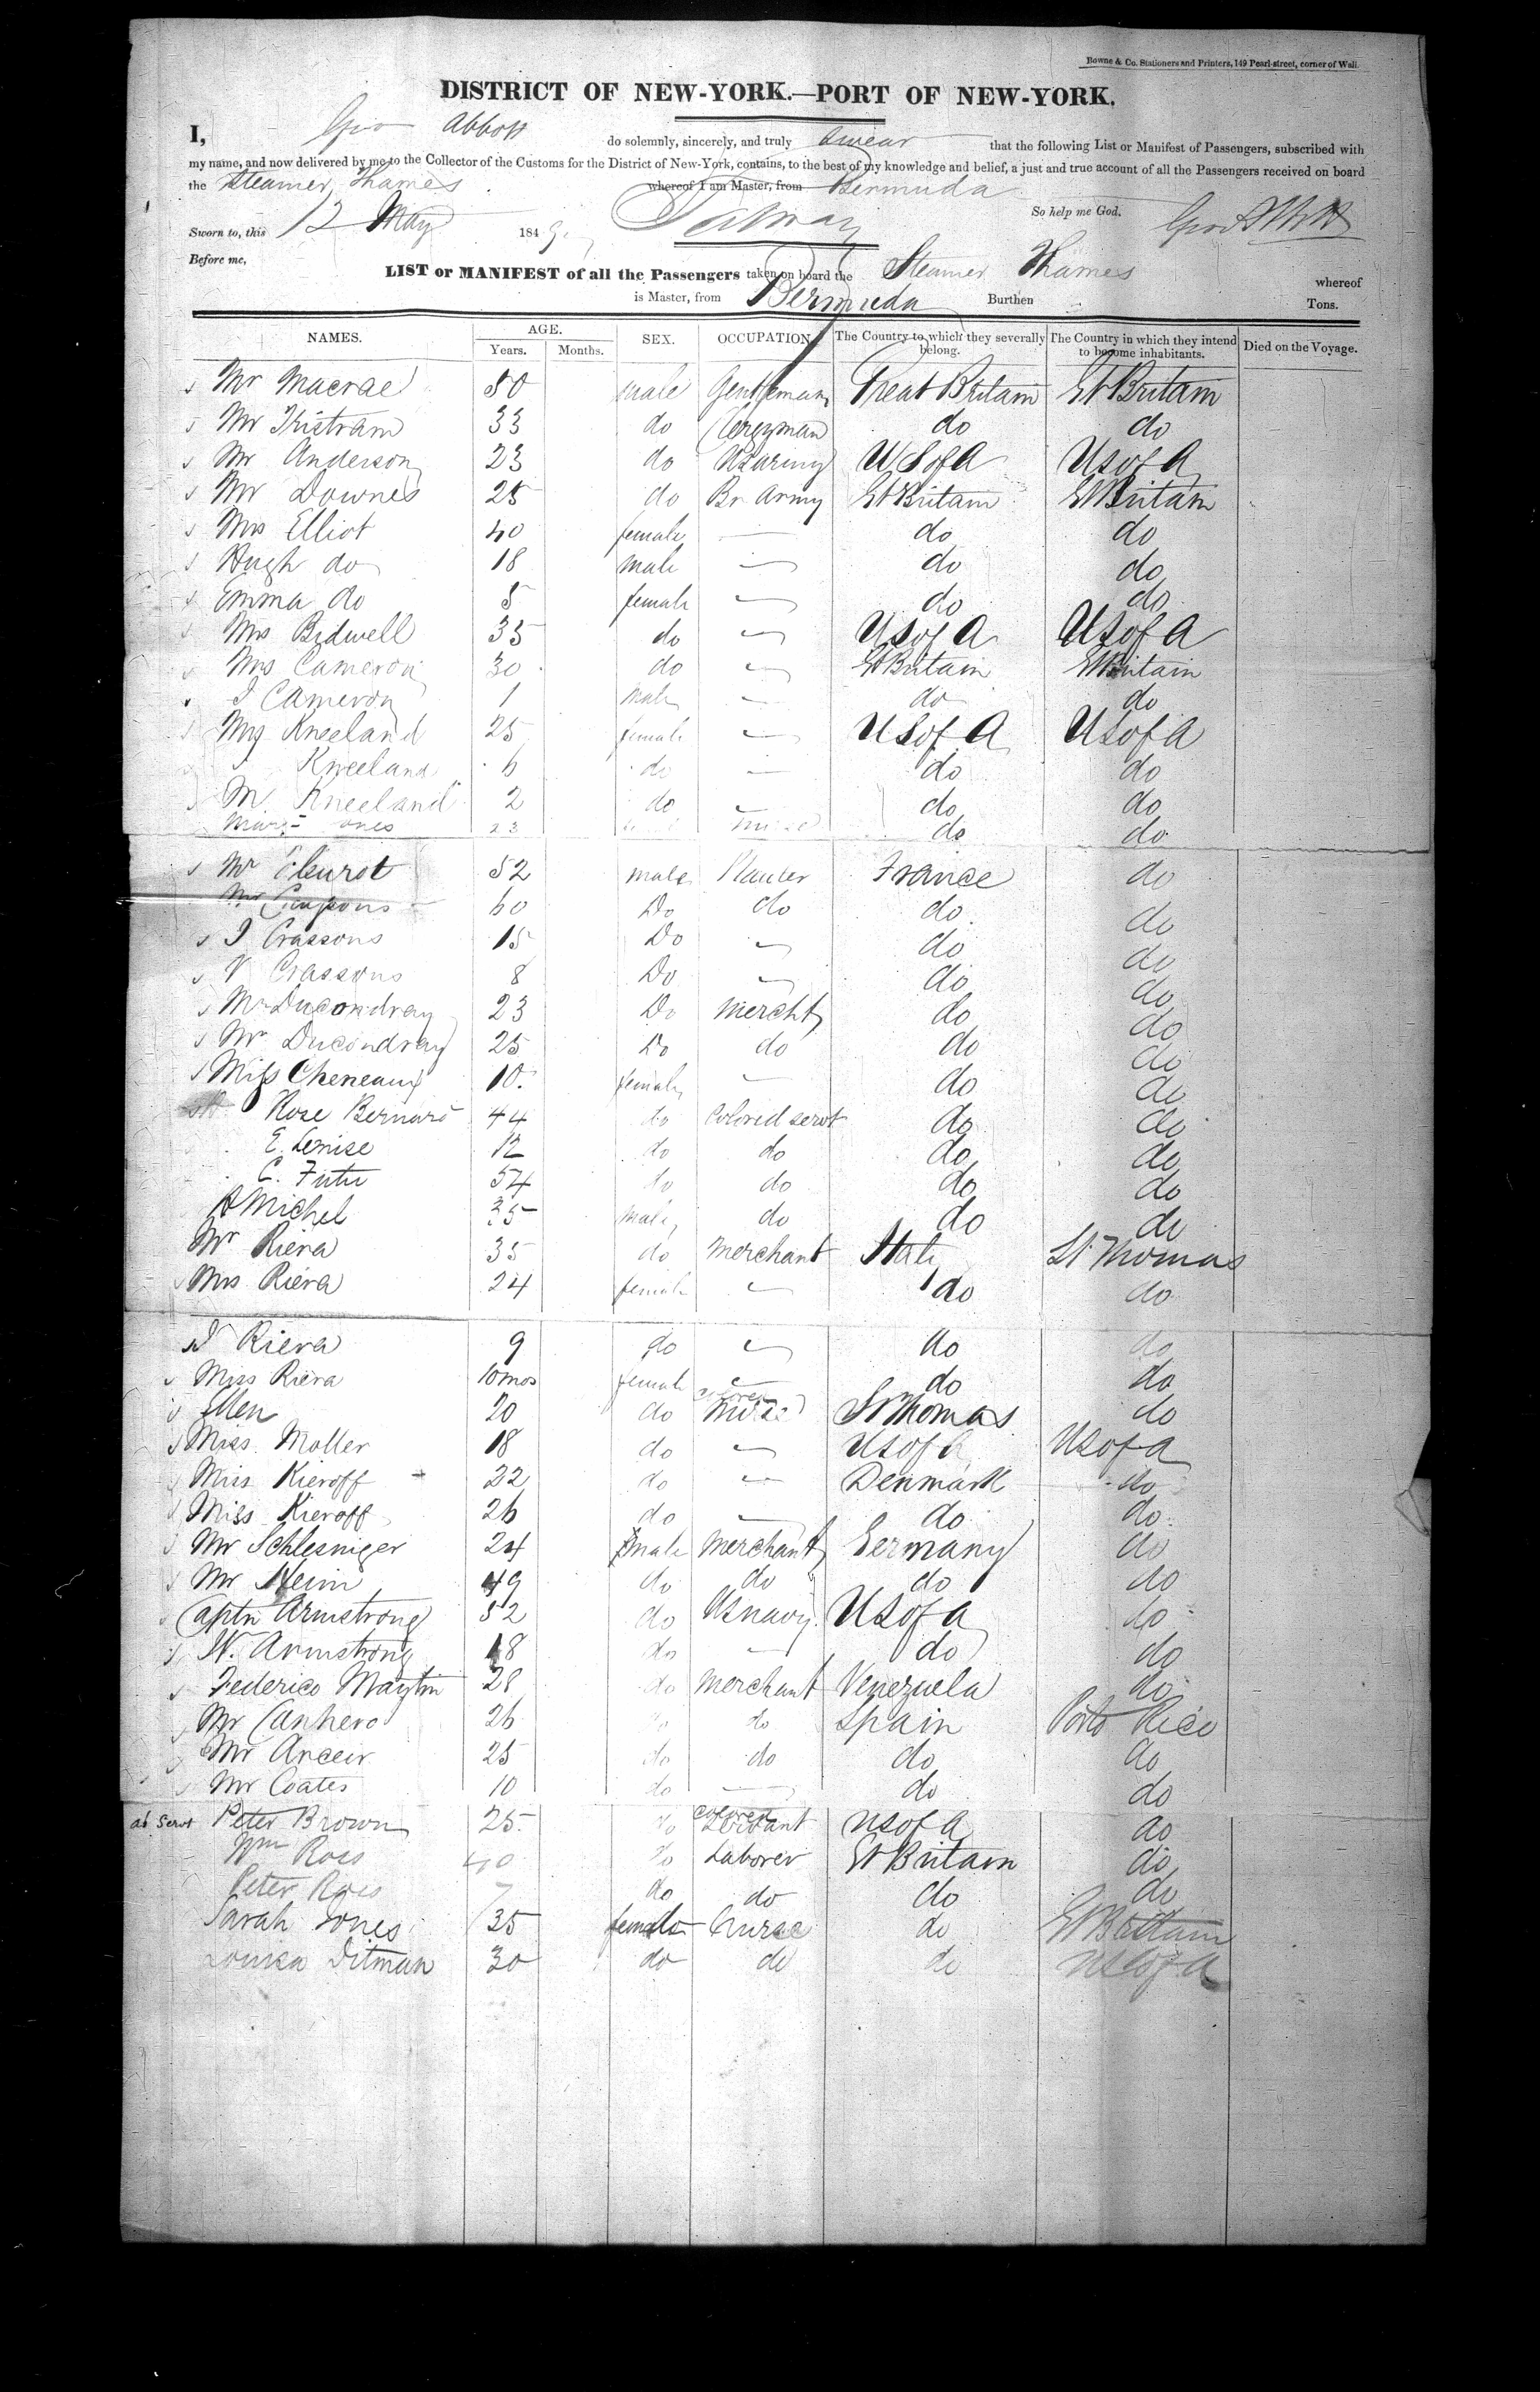 Bowne & Co. Stationers and Printers, 149 Pearl-street, corner of Wall.
DISTRICT OF NEW-YORK.—PORT OF NEW-YORK.
I, Geo Abbott do solemnly, sincerely, and truly swear that the following List or Manifest of Passengers, subscribed with
my name, and now delivered by me to the Collector of the Customs for the District of New-York, contains, to the best of my knowledge and belief, a just and true account of all the Passengers received on board
the Steamer Thames whereof I am Master, from Bermuda
Sworn to, this 12 May 1849 So help me God. Geo Abbott
Before me,
LIST or MANIFEST of all the Passengers taken on board the Steamer Thames whereof
is Master, from Bermuda Burthen Tons.
NAMES. AGE. Years. Months. SEX. OCCUPATION The Country to which they severally belong. The Country in which they intend to become inhabitants. Died on the Voyage.
Mr Macrae 50 male Gentleman Great Britain Gt Britain
Mr Tristram 33 do Clergyman do do
Mr Anderson 23 do US army U S of A U S of A
Mr Downes 25 do Br Army Gt Britain Gt Britain
Mrs Elliot 40 female — do do
Hugh do 18 male — do do
Emma do 5 female — do do
Mrs Bidwell 35 do — U S of A U S of A
Mrs Cameron 30 do — Gt Britain Gt Britain
J Cameron 1 male — do do
Mrs Kneeland 25 female — U S of A U S of A
Kneeland 6 do — do do
M. Kneeland 2 do — do do
Mary 23 do do
Mr Fleurot 52 male Planter France do
Mr 60 Do do do do
J Crassons 15 Do — do do
V Crassons 8 Do — do do
Mr Ducondray 23 Do Mercht do do
Mr Ducondray 25 Do do do do
Miss Cheneaux 10. female — do do
Rose Bernard 44 do Colored servt do do
E. Denise 12 do do do do
C. 54 do do do do
A Michel 35 male do do do
Mr Riera 35 do Merchant Itali St Thomas
Mrs Riera 24 female — do do
J Riera 9 do — do do
Miss Riera 10 mos female — do do
Ellen 20 do colored Nurse St Thomas do
Miss Moller 18 do — U S of A U S of A
Miss Kieroff 22 do — Denmark do
Miss Kieroff 26 do — do do
Mr Schlesniger 24 male Merchant Germany do
Mr Heim 49 do do do do
Captn Armstrong 52 do US navy. U S of A do
W. Armstrong 18 do — do do
Federico Maytin 28 do Merchant Venezuela do
Mr Canhero 26 do do Spain Porto Rico
Mr Arceir 25 do do do do
Mr Coates 10 do — do do
Servt Peter Brown 25. do colored Servant U S of A do
Wm Ross 40 do Laborer Gt Britain do
Peter Ross 7 do do do do
Sarah Jones 35 female Nurse do Gt Britain
Louisa Ditman 30 do do do U S of A